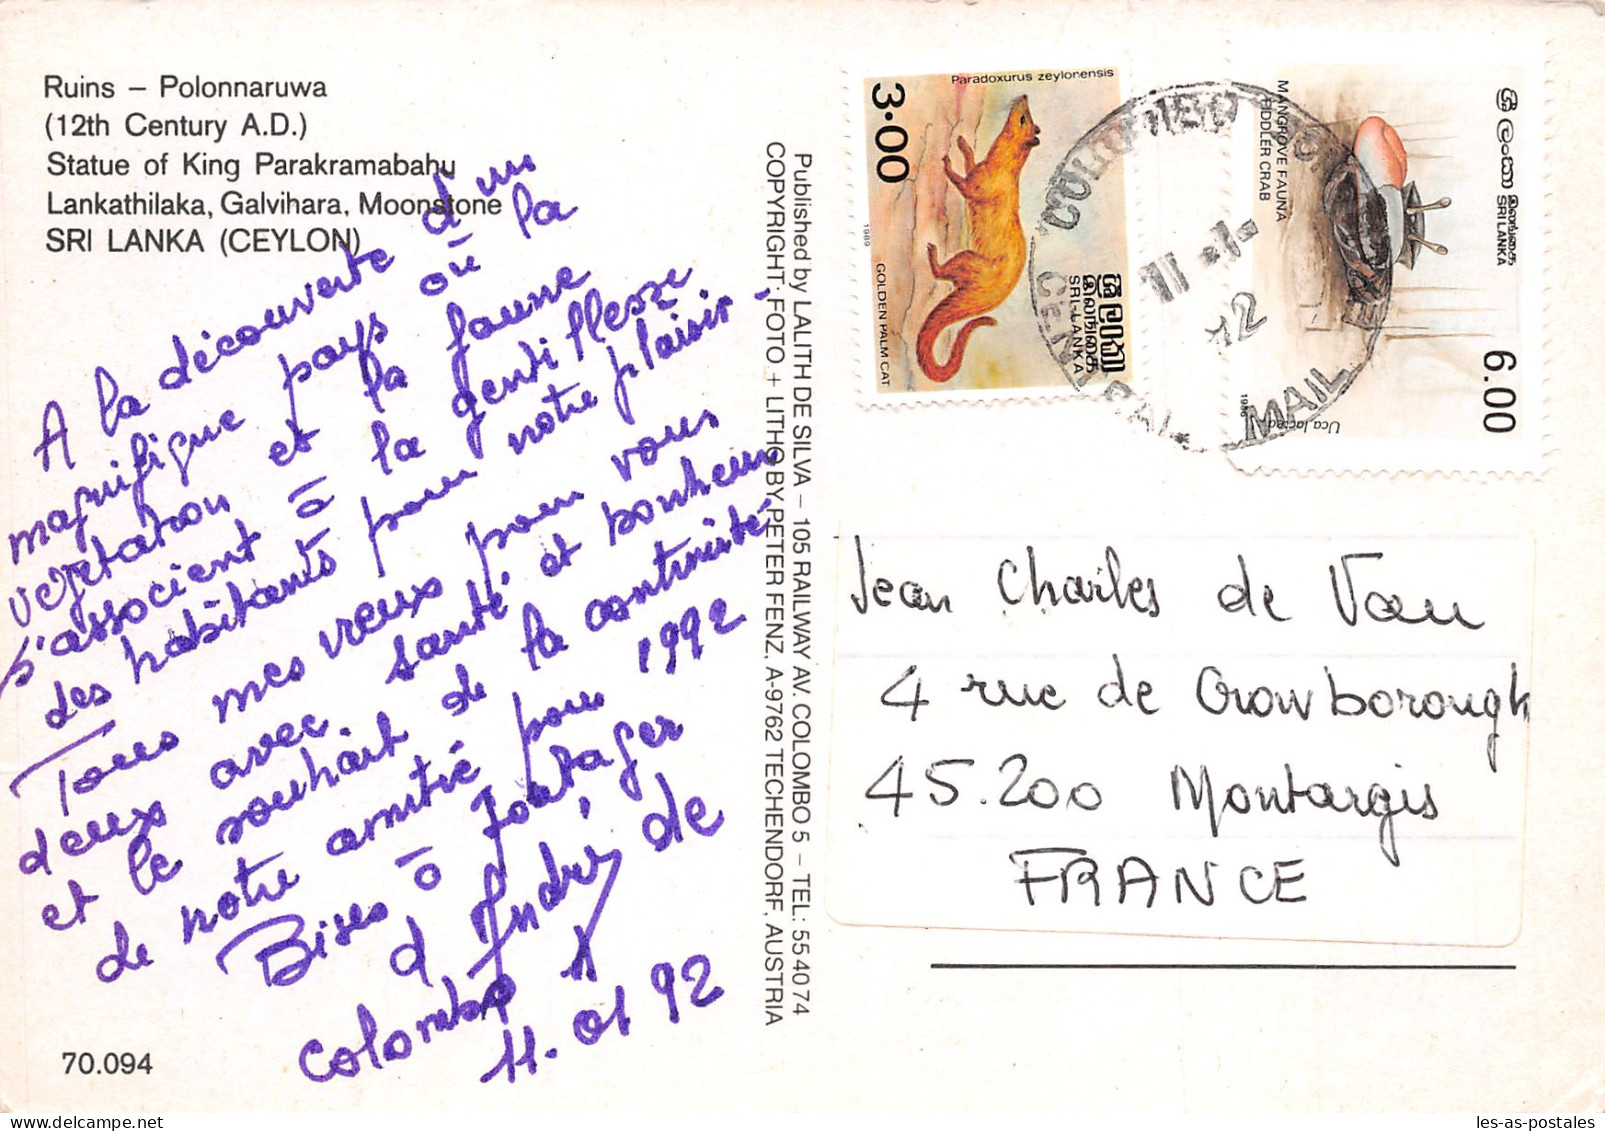 Ruins – Polonnaruwa
(12th Century A.D.)
Statue of King Parakramabahu
Lankathilaka, Galvihara, Moonstone
SRI LANKA (CEYLON)
A la découverte d'un
magnifique pays où la
végétation et la faune
s'associent à la gentillesse
des habitants pour notre plaisir
Tous mes vœux pour vous
deux avec santé et bonheur
et le souhait de la continuité
de notre amitié pour 1992
Bises à partager
d'André de
Colombo
11.01 92
70.094
Published by LALITH DE SILVA – 105 RAILWAY AV. COLOMBO 5 – TEL: 55 4074
COPYRIGHT: FOTO + LITHO BY PETER FENZ, A-9762 TECHENDORF, AUSTRIA
Paradoxurus zeylonensis
3.00
1989
GOLDEN PALM CAT
ශ්‍රී ලංකා
இலங்கை
SRI LANKA
COLOMBO
11
92
CENTRAL MAIL
MANGROVE FAUNA
FIDDLER CRAB
ශ්‍රී ලංකා இலங்கை
SRI LANKA
6.00
1986
Uca lactea
Jean Charles de Vau
4 rue de Crowborough
45.200 Montargis
FRANCE
les-as-postales